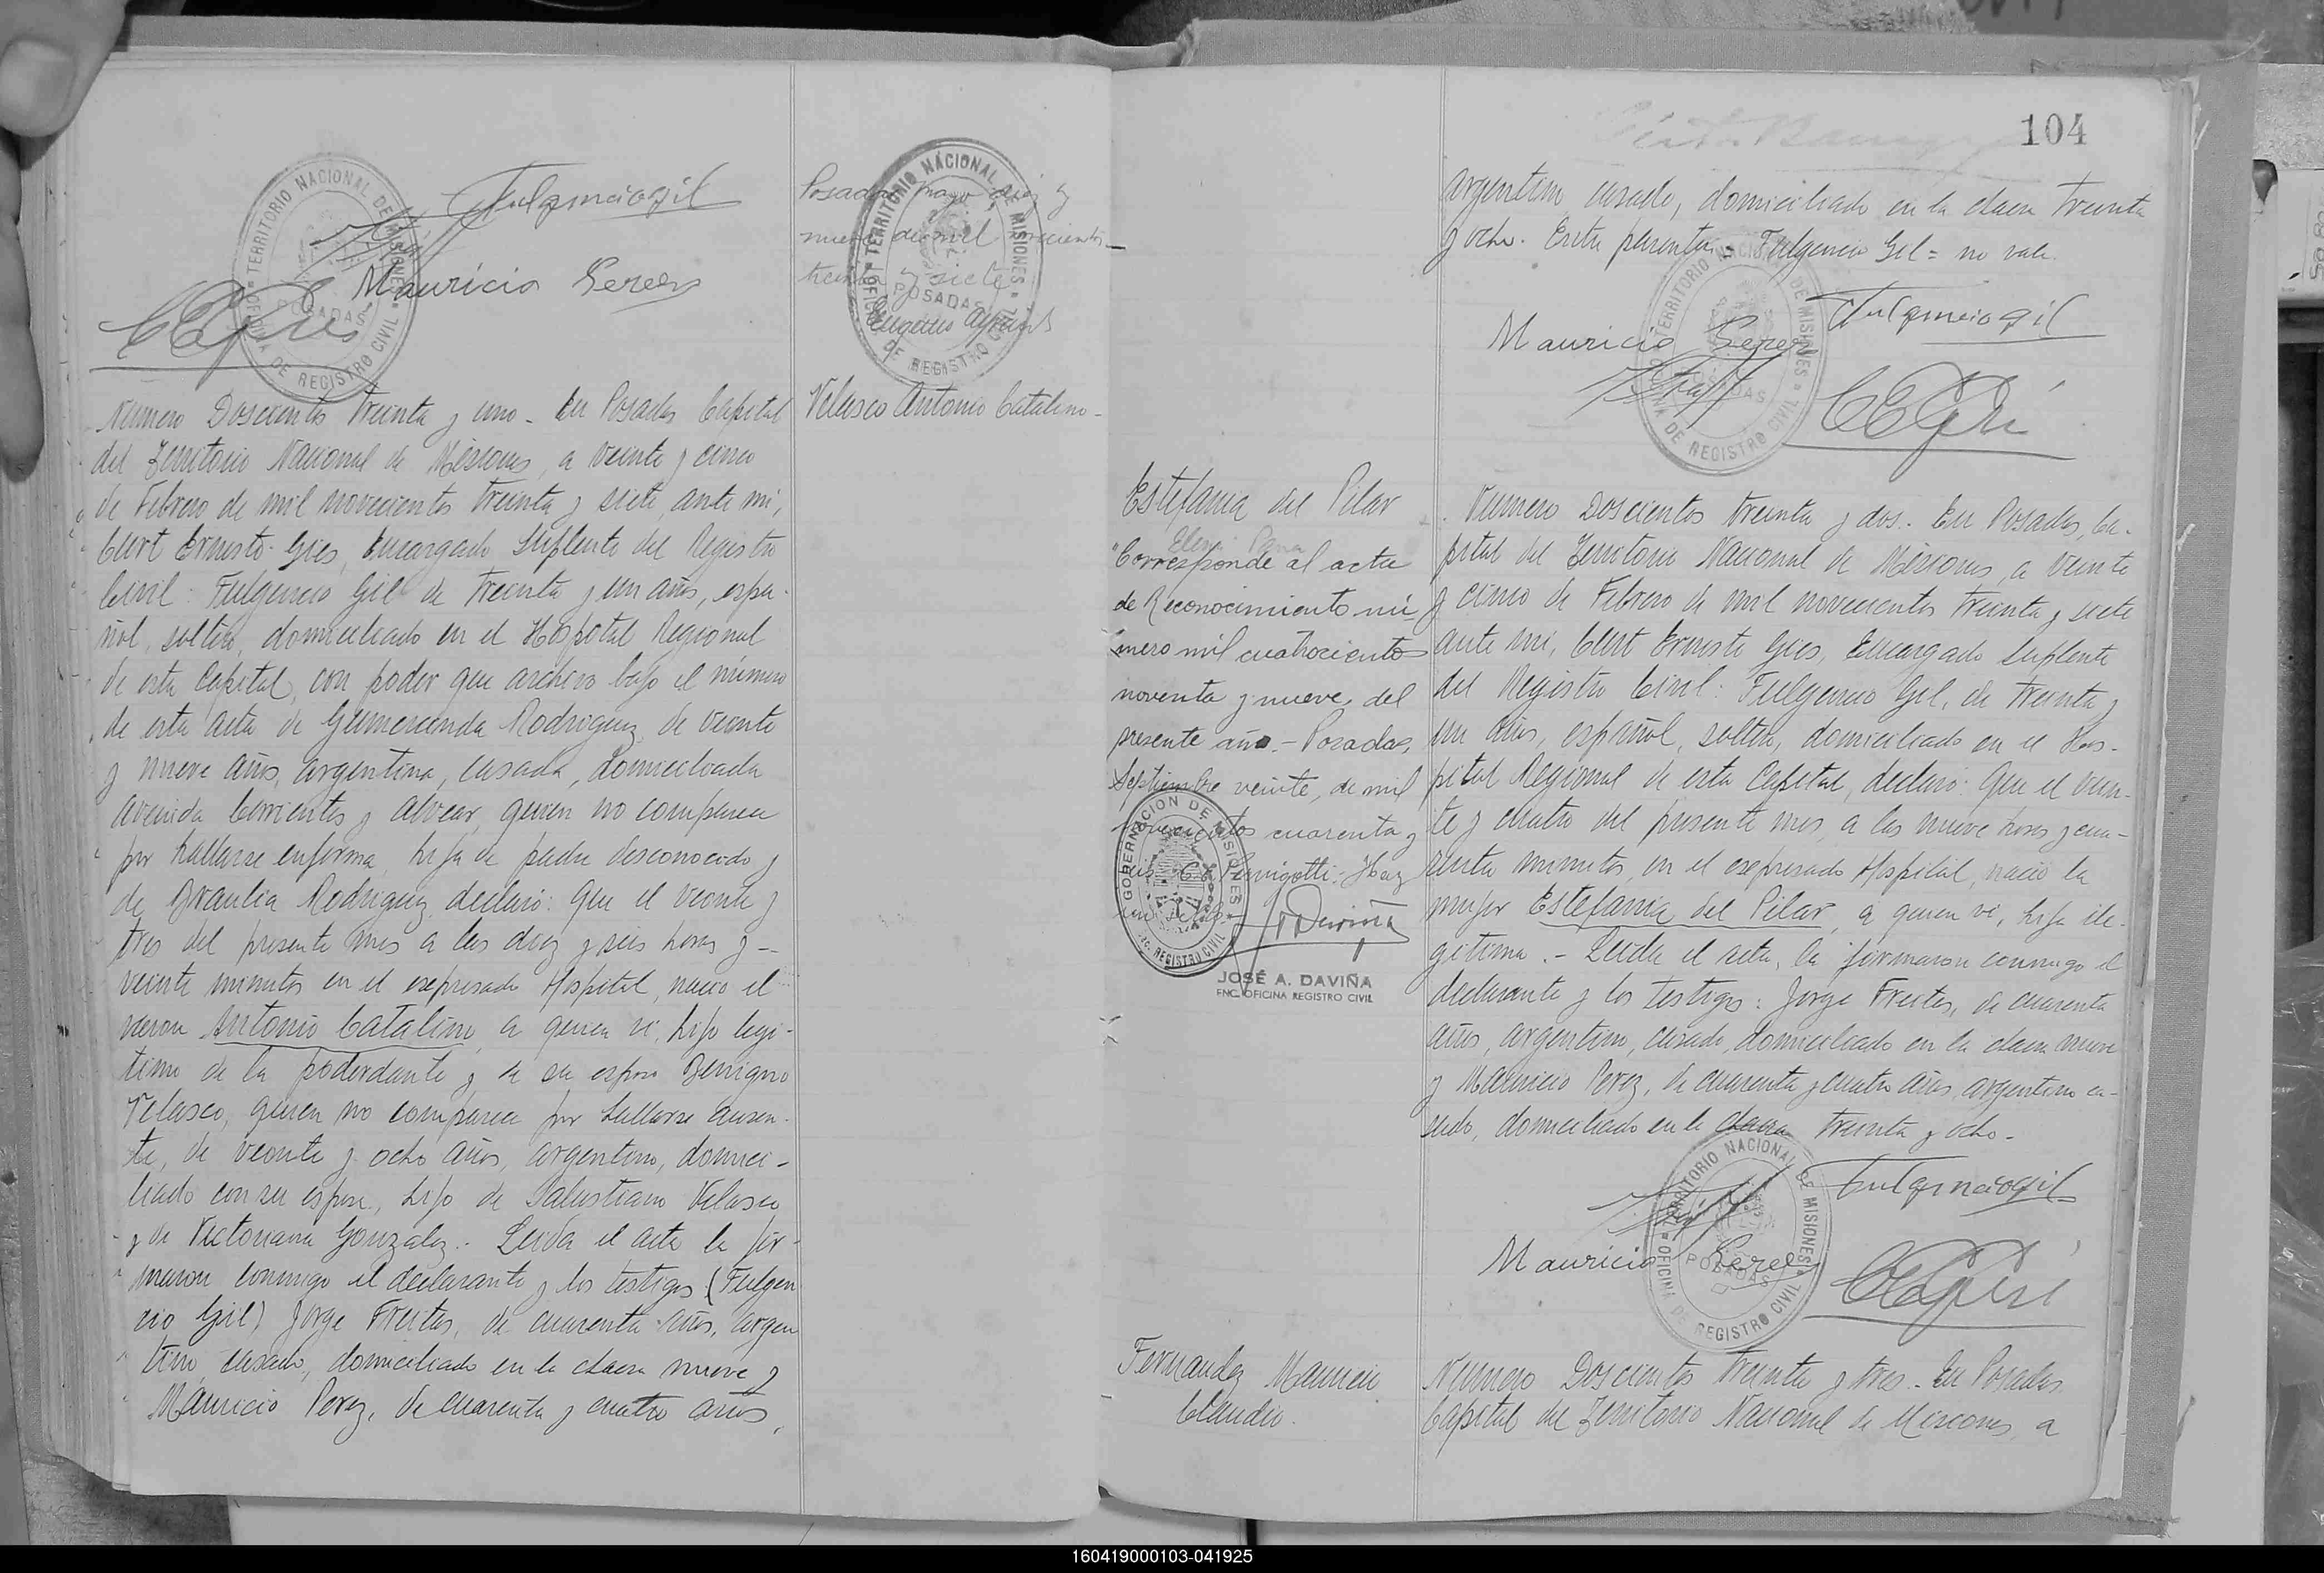 Fulgenciogil
Mauricio Perez
CEGies
TERRITORIO NACIONAL DE MISIONES
OFICINA DE REGISTRO CIVIL
POSADAS
Posadas, mayo diez y
nueve de mil novecientos
treinta y siete
TERRITORIO NACIONAL DE MISIONES
OFICINA DE REGISTRO CIVIL
POSADAS
Velasco Antonio Catalino-
Número Doscientos treinta y uno- En Posadas Capital
del Territorio Nacional de Misiones, a veinte y cinco
de Febrero de mil novecientos treinta y siete, ante mi,
Curt Ernesto Gies, Encargado Suplente del Registro
Civil: Fulgencio Gil de treinta y un años, espa-
ñol, soltero, domiciliado en el Hospital Regional
de esta Capital, con poder que archivo bajo el número
de esta acta de Gumercinda Rodriguez, de veinte
y nueve años, argentina, casada, domiciliada
Avenida Corrientes y Alvear, quien no comparece
por hallarse enferma, hija de padre desconocido y
de Braulia Rodriguez, declaró: Que el veinte y
tres del presente mes a las diez y seis horas y -
veinte minutos en el expresado Hospital, nació el
varon Antonio Catalino, a quien vi, hijo legi-
timo de la poderdante y de su esposo Benigno
Velasco, quien no comparece por hallarse ausen-
te, de veinte y ocho años, argentino, domici-
liado con su esposa, hijo de Salustiano Velasco
y de Victoriana Gonzalez.- Leida el acta la fir-
maron conmigo el declarante y los testigos (Fulgen
cio Gil) Jorge Freites, de cuarenta años, argen
tino, casado, domiciliado en la chacra nueve y
Mauricio Perez, de cuarenta y cuatro años,
104
argentino casado, domiciliado en la chacra treinta
y ocho. Entre parentesis Fulgencio Gil = no vale.
Mauricio Perez
Fulgenciogil
CEGies
TERRITORIO NACIONAL DE MISIONES
OFICINA DE REGISTRO CIVIL
POSADAS
Estefania del Pilar
Elena
"Corresponde al acta
de Reconocimiento nú-
mero mil cuatrocientos
noventa y nueve, del
presente año.- Posadas,
Septiembre veinte, de mil
novecientos cuarenta y
GOBERNACION DE MISIONES
REGISTRO CIVIL
JOSÉ A. DAVIÑA
ENC. OFICINA REGISTRO CIVIL
Número Doscientos treinta y dos.- En Posadas, Ca-
pital del Territorio Nacional de Misiones, a veinte
y cinco de Febrero de mil novecientos treinta y siete
ante mi, Curt Ernesto Gies, Encargado Suplente
del Registro Civil: Fulgencio Gil, de treinta y
un años, español, soltero, domiciliado en el Hos-
pital Regional de esta Capital, declaró: Que el vein-
te y cuatro del presente mes, a las nueve horas y cua-
renta minutos, en el expresado Hospital, nació la
mujer Estefania del Pilar, a quien vi, hija ile-
gitima.- Leida el acta, la firmaron conmigo el
declarante y los testigos: Jorge Freites, de cuarenta
años, argentino, casado, domiciliado en la chacra nueve
y Mauricio Perez, de cuarenta y cuatro años, argentino ca-
sado, domiciliado en la chacra treinta y ocho-
Fulgenciogil
Mauricio Perez
CEGies
TERRITORIO NACIONAL DE MISIONES
OFICINA DE REGISTRO CIVIL
POSADAS
Fernandez Mauricio
Claudio.
Número Doscientos treinta y tres.- En Posadas
Capital del Territorio Nacional de Misiones, a
160419000103-041925